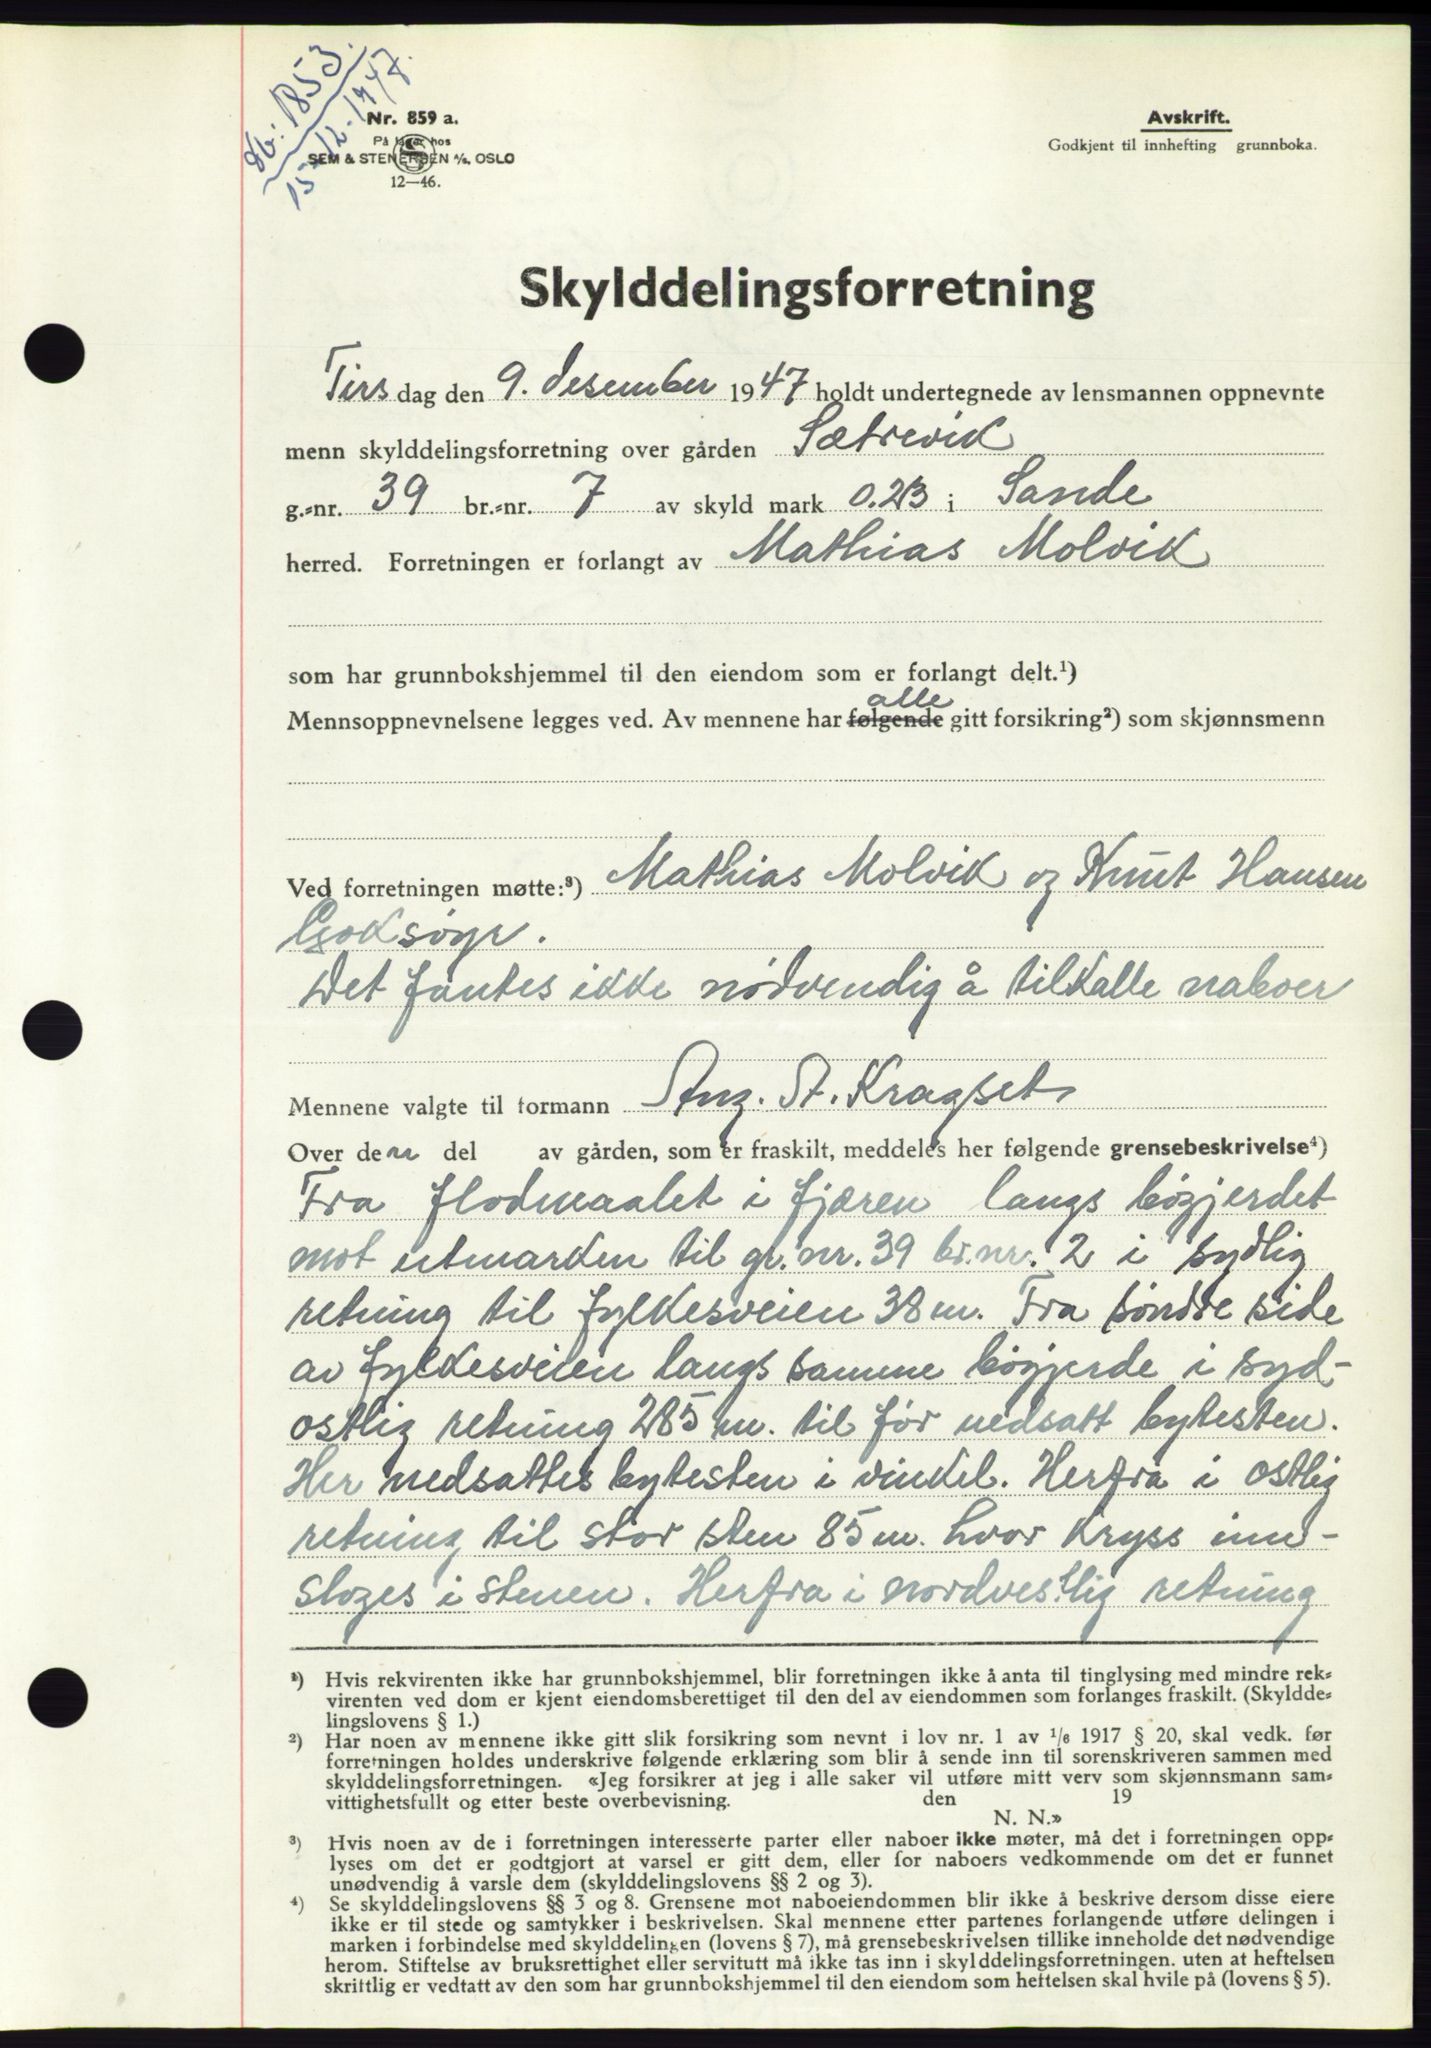 Db: 1853.
15-12-1947.
Nr. 859 a.
På lager hos
SEM & STENERSEN A/S, OSLO
12—46.
Avskrift.
Godkjent til innhefting grunnboka.
Skylddelingsforretning
Tirsdag den 9. desember 1947 holdt undertegnede av lensmannen oppnevnte
menn skylddelingsforretning over gården Sætrevik
g.=nr. 39 br.=nr. 7 av skyld mark 0.23 i Sande
herred. Forretningen er forlangt av Mathias Molvik
som har grunnbokshjemmel til den eiendom som er forlangt delt.¹)
alle
Mennsoppnevnelsene legges ved. Av mennene har følgende gitt forsikring²) som skjønnsmenn
Ved forretningen møtte:³) Mathias Molvik og Knut Hansen
Goksøyr.
Det fantes ikke nødvendig å tilkalle naboer
Mennene valgte til formann Ang. A. Kragset
Over den del av gården, som er fraskilt, meddeles her følgende grensebeskrivelse⁴)
Fra flodmaalet i fjæren langs bøgjerdet
mot utmarken til gr. nr. 39 br. nr. 2 i sydlig
retning til fylkesveien 38 m. Fra søndre side
av fylkesveien langs samme bøgjerde i syd-
østlig retning 285 m. til før nedsatt bytesten.
Her nedsattes bytesten i vinkel. Herfra i østlig
retning til stor sten 85 m. hvor kryss inn-
sløges i stenen. Herfra i nordvestlig retning
¹) Hvis rekvirenten ikke har grunnbokshjemmel, blir forretningen ikke å anta til tinglysing med mindre rek=
virenten ved dom er kjent eiendomsberettiget til den del av eiendommen som forlanges fraskilt. (Skyldde=
lingslovens § 1.)
²) Har noen av mennene ikke gitt slik forsikring som nevnt i lov nr. 1 av 1/6 1917 § 20, skal vedk. før
forretningen holdes underskrive følgende erklæring som blir å sende inn til sorenskriveren sammen med
skylddelingsforretningen. «Jeg forsikrer at jeg i alle saker vil utføre mitt verv som skjønnsmann sam=
vittighetsfullt og etter beste overbevisning. den 19
N. N.»
³) Hvis noen av de i forretningen interesserte parter eller naboer ikke møter, må det i forretningen opp=
lyses om det er godtgjort at varsel er gitt dem, eller for naboers vedkommende om det er funnet
unødvendig å varsle dem (skylddelingslovens §§ 2 og 3).
⁴) Se skylddelingslovens §§ 3 og 8. Grensene mot naboeiendommen blir ikke å beskrive dersom disse eiere
ikke er til stede og samtykker i beskrivelsen. Skal mennene etter partenes forlangende utføre delingen i
marken i forbindelse med skylddelingen (lovens § 7), må grensebeskrivelsen tillike inneholde det nødvendige
herom. Stiftelse av bruksrettighet eller servitutt må ikke tas inn i skylddelingsforretningen. uten at heftelsen
skriftlig er vedtatt av den som har grunnbokshjemmel til den eiendom som heftelsen skal hvile på (lovens § 5).